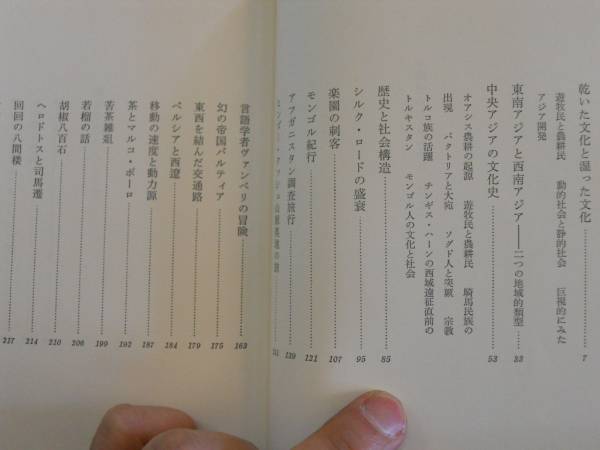 乾いた文化と湿った文化………7
遊牧民と農耕民　動的社会と静的社会　巨視的にみた
アジア開発
東南アジアと西南アジア――二つの地域的類型………33
中央アジアの文化史………53
オアシス農耕の起源　遊牧民と農耕民　騎馬民族の
出現　バクトリアと大宛　ソグド人と突厥　宗教
トルコ族の活躍　チンギス・ハーンの西域遠征直前の
トルキスタン　モンゴル人の文化と社会
歴史と社会構造………85
シルク・ロードの盛衰………95
楽園の刺客………107
モンゴル紀行………121
アフガニスタン調査旅行………139
言語学者ヴァンベリの冒険………163
幻の帝国パルティア………175
東西を結んだ交通路………179
ペルシアと西遼………184
移動の速度と動力源………187
茶とマルコ・ポーロ………192
苦茶雑俎………199
若榴の話………206
胡椒八百石………210
ヘロドトスと司馬遷………214
回回の八間楼………217